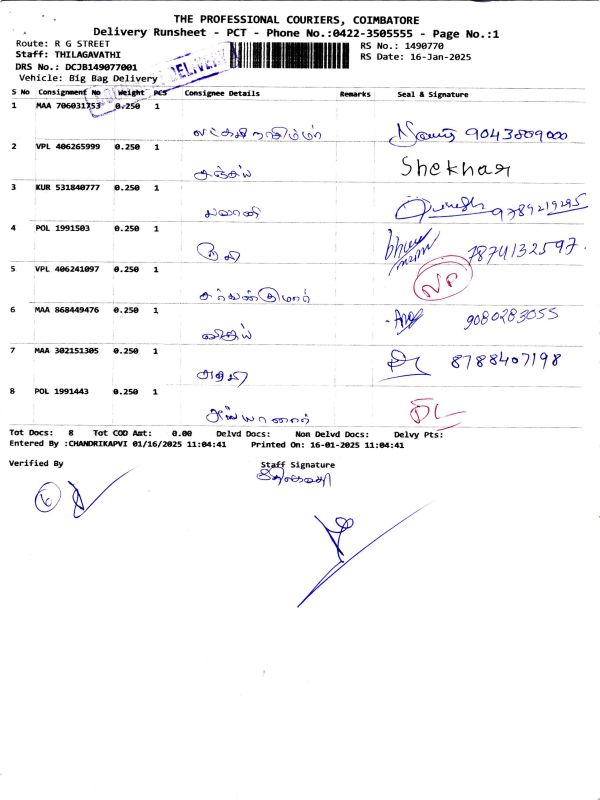 THE PROFESSIONAL COURIERS, COIMBATORE
Delivery Runsheet - PCT - Phone No.:0422-3505555 - Page No.:1
Route: R G STREET
RS No.: 1490770
Staff: THILAGAVATHI
RS Date: 16-Jan-2025
DRS No.: DCJB149077001
Vehicle: Big Bag Delivery
DELIVERY
S No Consignment No Weight PCS Consignee Details Remarks Seal & Signature
1 MAA 706031753 0.250 1
லட்சுமி நரசிம்மர் 9043809000
2 VPL 406265999 0.250 1
சஞ்சய் Shekhar
3 KUR 531840777 0.250 1
பவானி 9789219295
4 POL 1991503 0.250 1
7874132597
5 VPL 406241097 0.250 1
NP
சரவணகுமார்
6 MAA 868449476 0.250 1
விஜய் 9080283055
7 MAA 302151305 0.250 1
8788407198
8 POL 1991443 0.250 1
அய்யனார் DL
Tot Docs: 8 Tot COD Amt: 0.00 Delvd Docs: Non Delvd Docs: Delvy Pts:
Entered By :CHANDRIKAPVI 01/16/2025 11:04:41 Printed On: 16-01-2025 11:04:41
Verified By Staff Signature
திலகவதி
6